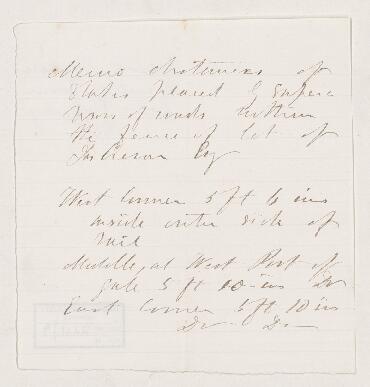 Memo distances of
Stakes placed by Supervi
sors of roads within
the fence of lot of
Jas Creson Esq
West Corner 5 ft 6 ins
inside outer side of
rail
Middle, at West Post of
gate 5 ft 10 ins Do
East Corner 5 ft 10 ins
Do Do